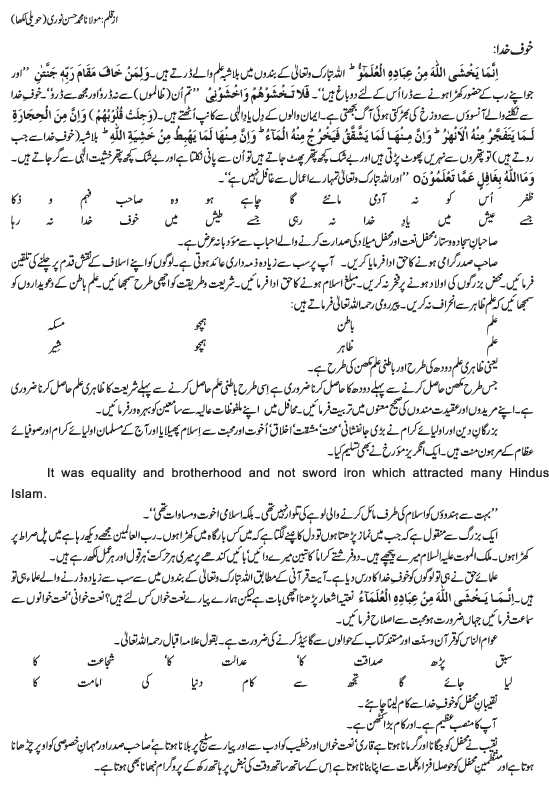 از قلم: مولانا محمد حسن نوری (حویلی لکھا)
خوف خدا:
اِنَّمَا يَخْشَى اللّٰهَ مِنْ عِبَادِهِ الْعُلَمٰٓؤُا ؕ اللہ تبارک وتعالیٰ کے بندوں میں بلاشبہ علم والے ڈرتے ہیں۔ وَلِمَنْ خَافَ مَقَامَ رَبِّهٖ جَنَّتٰنِ ’’اور
جو اپنے رب کے حضور کھڑا ہونے سے ڈرا اُس کے لئے دو باغ ہیں‘‘۔ فَلَا تَخْشَوْهُمْ وَاخْشَوْنِیْ ’’تم اُن (ظالموں) سے نہ ڈرو اور مجھ سے ڈرو‘‘۔ خوفِ خدا
سے نکلنے والے آنسوؤں سے دوزخ کی بھڑکتی ہوئی آگ بجھتی ہے۔ ایمان والوں کے دل یادِ الٰہی سے کانپ اُٹھتے ہیں۔ (وَجِلَتْ قُلُوْبُهُمْ) وَاِنَّ مِنَ الْحِجَارَةِ
لَمَا يَتَفَجَّرُ مِنْهُ الْاَنْهٰرُ ؕ وَاِنَّ مِنْهَا لَمَا يَشَّقَّقُ فَيَخْرُجُ مِنْهُ الْمَآءُ ؕ وَاِنَّ مِنْهَا لَمَا يَهْبِطُ مِنْ خَشْيَةِ اللّٰهِ ؕ بلاشبہ (خوفِ خدا سے جب
روتے ہیں) تو پتھروں سے نہریں پھوٹ پڑتی ہیں اور بے شک کچھ پتھر پھٹ جاتے ہیں تو اُن سے پانی نکلتا ہے اور بے شک کچھ پتھر خشیت الٰہی سے گر جاتے ہیں۔
وَمَا اللّٰهُ بِغَافِلٍ عَمَّا تَعْلَمُوْنَo ’’اور اللہ تبارک وتعالیٰ تمہارے اعمال سے غافل نہیں ہے‘‘۔
ظفر اُس کو نہ آدمی مانئے گا چاہے ہو وہ صاحب فہم و ذکا
جسے عیش میں یادِ خدا نہ رہی جسے طیش میں خوف خدا نہ رہا
صاحبانِ سجادہ و ستار، محفل نعت اور محفل میلاد کی صدارت کرنے والے احباب سے مؤدبانہ عرض ہے۔
صاحب صدر گرامی ہونے کا حق ادا فرمایا کریں۔ آپ پر سب سے زیادہ ذمہ داری عائد ہوتی ہے۔ لوگوں کو اپنے اسلاف کے نقش قدم پر چلنے کی تلقین
فرمائیں۔ محض بزرگوں کی اولاد ہونے پر فخر نہ کریں۔ مبلغ اسلام ہونے کا حق ادا فرمائیں۔ شریعت و طریقت کو اچھی طرح سمجھائیں۔ علم باطن کے دعویداروں کو
سمجھائیں کہ علم ظاہر سے انحراف نہ کریں۔ پیر رومی رحمہ اللہ تعالیٰ فرماتے ہیں:
علم باطن ہمچو مسکہ
علم ظاہر ہمچو شیر
یعنی ظاہری علم دودھ کی طرح اور باطنی علم مکھن کی طرح ہے۔
جس طرح مکھن حاصل کرنے سے پہلے دودھ کا حاصل کرنا ضروری ہے اِسی طرح باطنی علم حاصل کرنے سے پہلے شریعت کا ظاہری علم حاصل کرنا ضروری
ہے۔ اپنے مریدوں اور عقیدت مندوں کی صحیح معنوں میں تربیت فرمائیں۔ محافل میں اپنے ملفوظات عالیہ سے سامعین کو بہرہ ور فرمائیں۔
بزرگانِ دین اور اولیائے کرام نے بڑی جانفشانی‘ محنت‘ مشقت‘ اخلاق‘ اُخوت اور محبت سے اسلام پھیلایا اور آج کے مسلمان اولیائے کرام اور صوفیائے
عظام کے مرہون منت ہیں۔ ایک انگریز مؤرخ نے بھی تسلیم کیا۔
It was equality and brotherhood and not sword iron which attracted many Hindus
Islam.
’’بہت سے ہندوؤں کو اسلام کی طرف مائل کرنے والی لوہے کی تلوار نہیں تھی۔ بلکہ اسلامی اخوت و مساوات تھی‘‘۔
ایک بزرگ سے منقول ہے کہ جب میں نماز پڑھتا ہوں تو دل کانپنے لگتا ہے کہ میں کس بارگاہ میں کھڑا ہوں۔ رب العالمین مجھے دیکھ رہا ہے میں پل صراط پر
کھڑا ہوں۔ ملک الموت علیہ السلام میرے پیچھے ہیں۔ دو فرشتے کراماً کاتبین میرے دائیں‘ بائیں کندھے پر میری ہر حرکت‘ ہر قول اور ہر عمل لکھ رہے ہیں۔
علمائے حق نے ہی تو لوگوں کو خوفِ خدا کا درس دیا ہے۔ آیت قرآنی کے مطابق اللہ تبارک وتعالیٰ کے بندوں میں سے سب سے زیادہ ڈرنے والے علماء ہی تو
ہیں۔ اِنَّمَا يَخْشَى اللّٰهَ مِنْ عِبَادِهِ الْعُلَمَاءُ نعتیہ اشعار پڑھنا اچھی بات ہے لیکن ہمارے پیارے نعت خواں کس لئے ہیں؟ نعت خوانی‘ نعت خوانوں سے
سماعت فرمائیں جہاں ضرورت ہو محبت سے اصلاح فرمائیں۔
عوام الناس کو قرآن و سنت اور مستند کتاب کے حوالوں سے گائیڈ کرنے کی ضرورت ہے۔ بقول علامہ اقبال رحمہ اللہ تعالیٰ۔
سبق پڑھ صداقت کا‘ عدالت کا‘ شجاعت کا
لیا جائے گا تجھ سے کام دنیا کی امامت کا
نقیبانِ محفل کو خوفِ خدا سے کام لینا چاہئے۔
آپ کا منصب عظیم ہے۔ اور کام بڑا کٹھن ہے۔
نقیب نے محفل کو جگانا اور گرمانا ہوتا ہے قاری‘ نعت خواں اور خطیب کو ادب سے اور پیار سے سٹیج پر بلانا ہوتا ہے‘ صاحب صدر اور مہمانِ خصوصی کو اوپر چڑھانا
ہوتا ہے اور منتظمینِ محفل کو حوصلہ افزاء کلمات سے اپنا بنانا ہوتا ہے اِس کے ساتھ ساتھ وقت کی نبض پر ہاتھ رکھ کے پروگرام نبھانا بھی ہوتا ہے۔